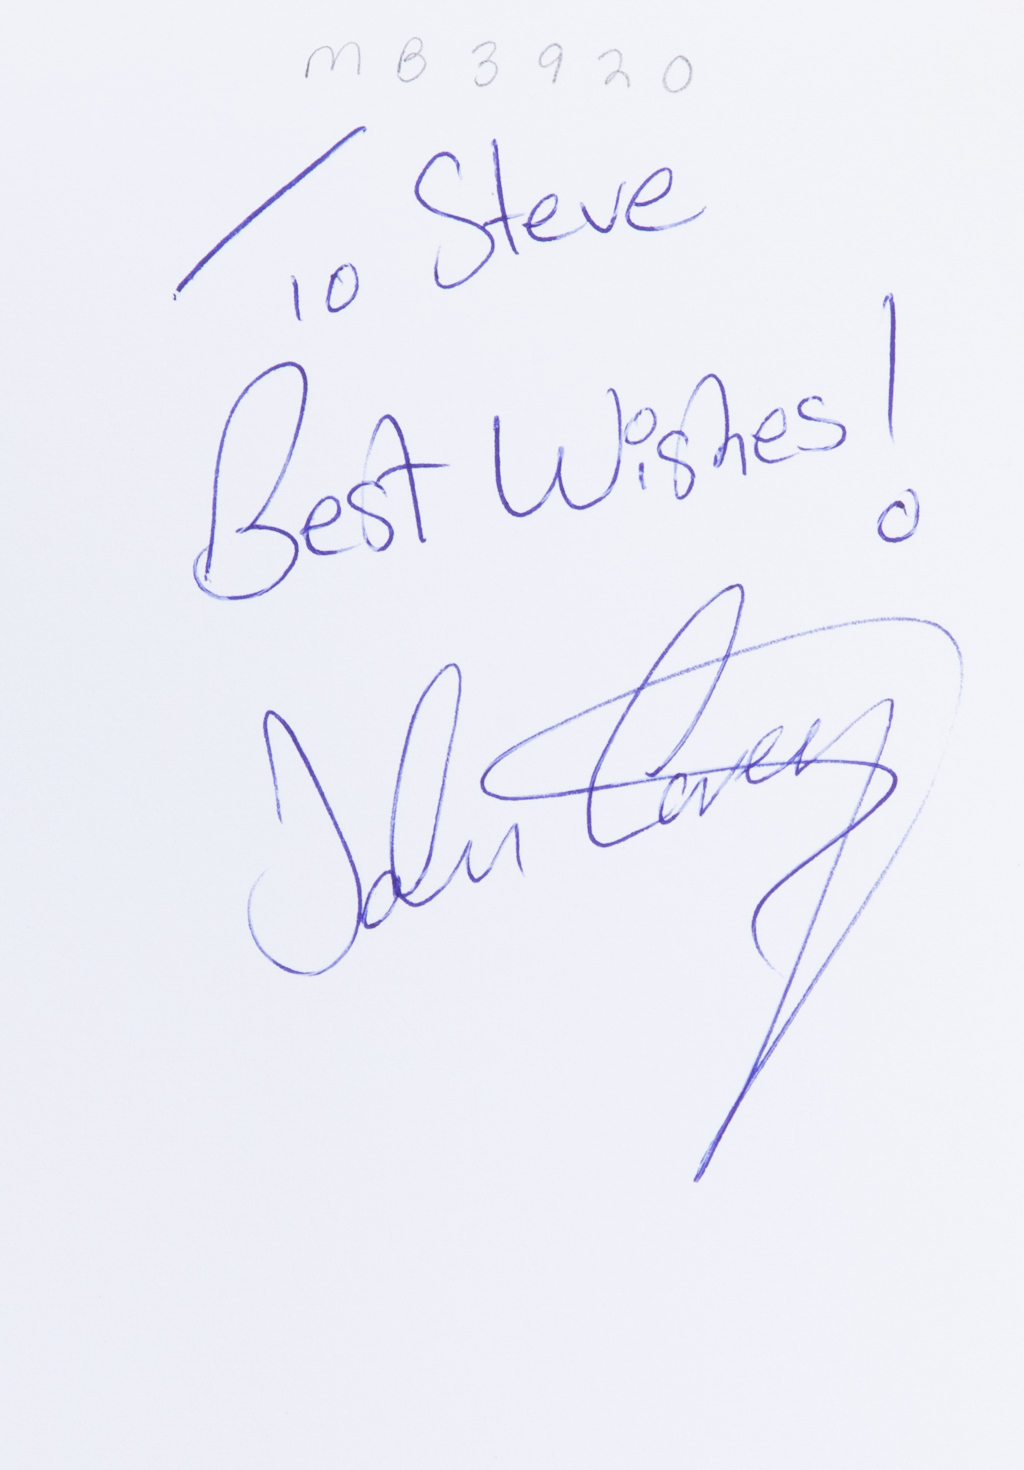 MB3920
To Steve
Best Wishes!
John